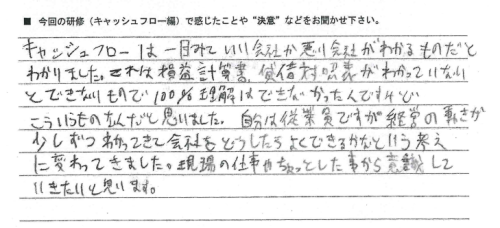 ■ 今回の研修（キャッシュフロー編）で感じたことや“決意”などをお聞かせ下さい。
キャッシュフローは一目みていい会社か悪い会社がわかるものだと
わかりました。これは損益計算書、貸借対照表がわかっていない
とできないもので100%理解はできなかったんですけど
こういうものなんだと思いました。自分は従業員ですが経営の動きが
少しずつわかってきて会社をどうしたらよくできるかなという考え
に変わってきました。現場の仕事やちょっとした事から意識して
いきたいと思います。